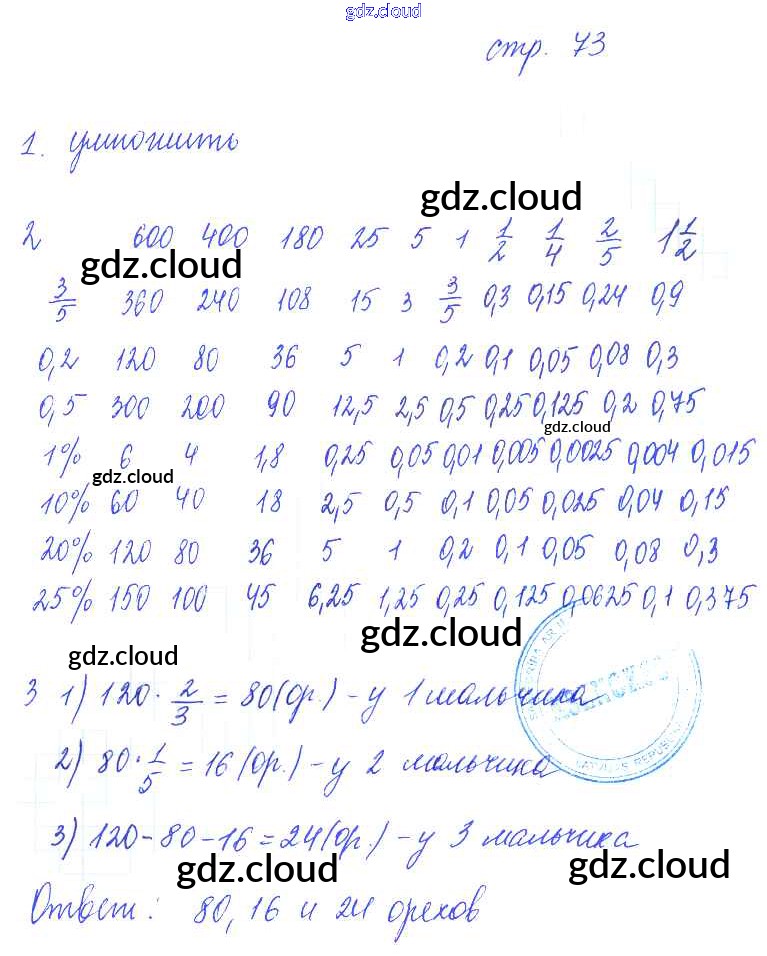 gdz.cloud
стр. 73
1. умножить
gdz.cloud
2 600 400 180 25 5 1 1/2 1/4 2/5 1 1/2
gdz.cloud
3/5 360 240 108 15 3 3/5 0,3 0,15 0,24 0,9
0,2 120 80 36 5 1 0,2 0,1 0,05 0,08 0,3
0,5 300 200 90 12,5 2,5 0,5 0,25 0,125 0,2 0,75
gdz.cloud
1% 6 4 1,8 0,25 0,05 0,01 0,005 0,0025 0,004 0,015
gdz.cloud
10% 60 40 18 2,5 0,5 0,1 0,05 0,025 0,04 0,15
20% 120 80 36 5 1 0,2 0,1 0,05 0,08 0,3
25% 150 100 45 6,25 1,25 0,25 0,125 0,0625 0,1 0,375
gdz.cloud
gdz.cloud
3 1) 120 · 2/3 = 80 (ор.) - у 1 мальчика
2) 80 · 1/5 = 16 (ор.) - у 2 мальчика
3) 120 - 80 - 16 = 24 (ор.) - у 3 мальчика
gdz.cloud
gdz.cloud
Ответ: 80, 16 и 24 орехов